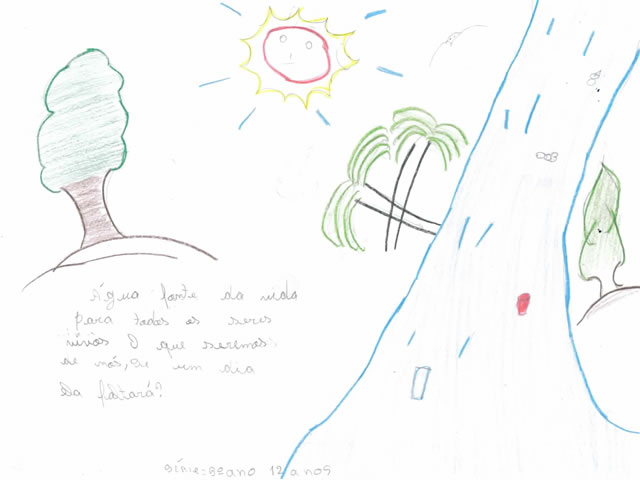 Água fonte da vida
para todos os seres
vivos O que seremos
de nós, se um dia
Ela faltará?
série: 5º ano 12 anos